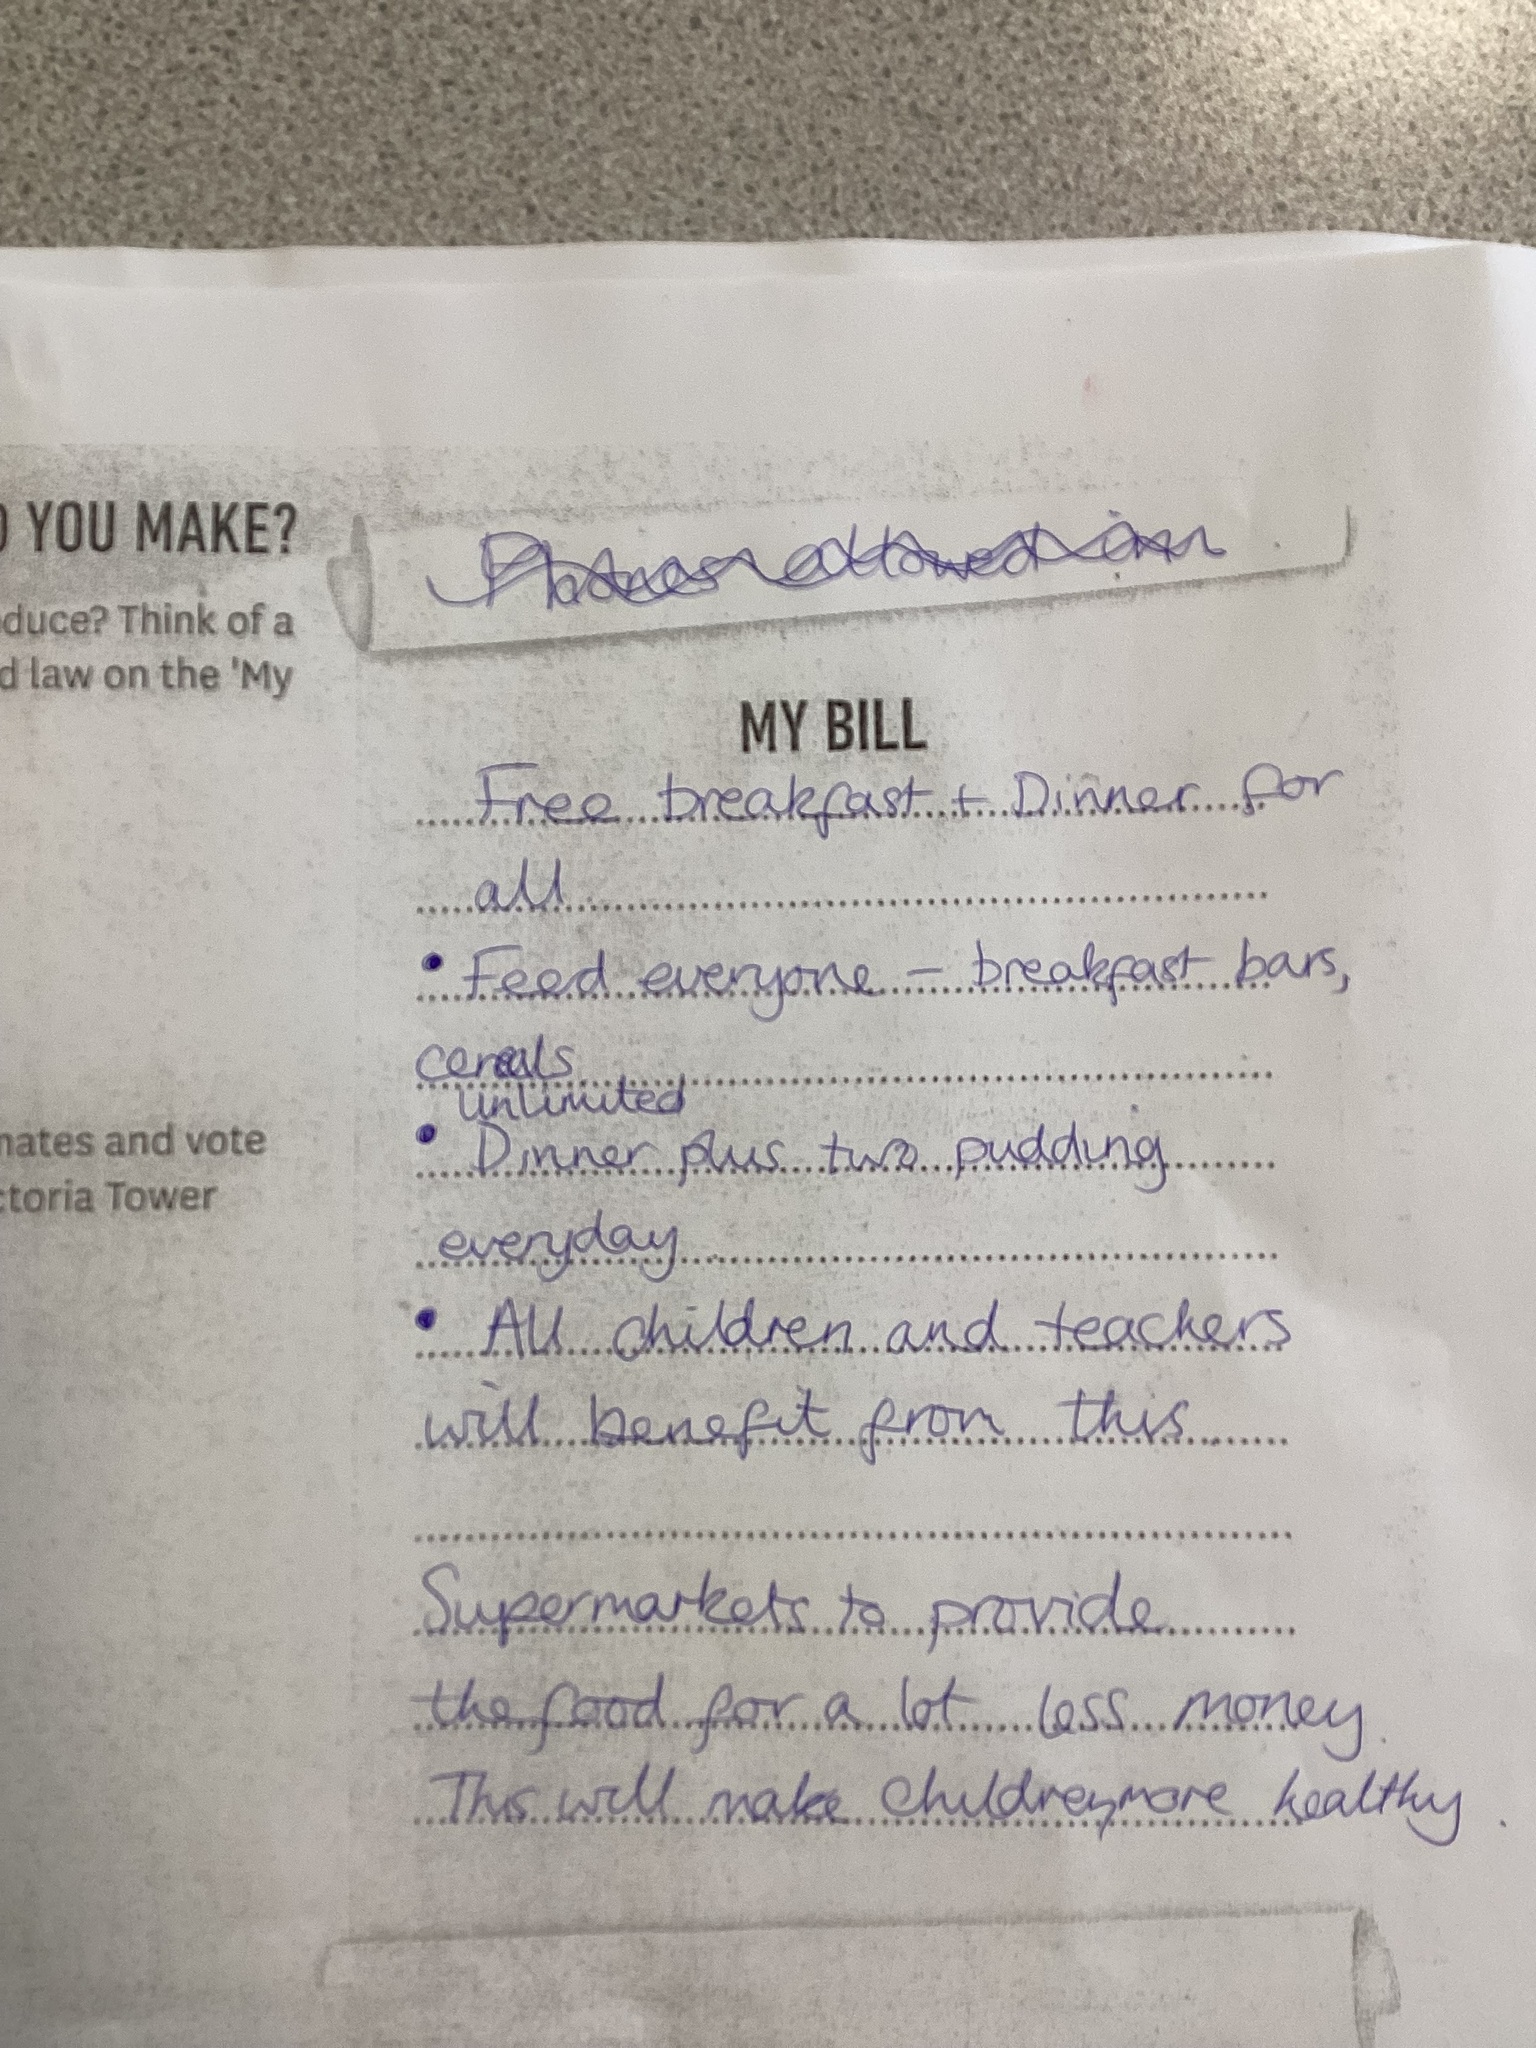 YOU MAKE?
duce? Think of a
d law on the 'My
mates and vote
ctoria Tower
Phones allowed in
MY BILL
Free breakfast + Dinner for
all
• Feed everyone – breakfast bars,
cereals
unlimited
• Dinner plus two pudding
everyday
• All children and teachers
will benefit from this
Supermarkets to provide
the food for a lot less money
This will make children more healthy.